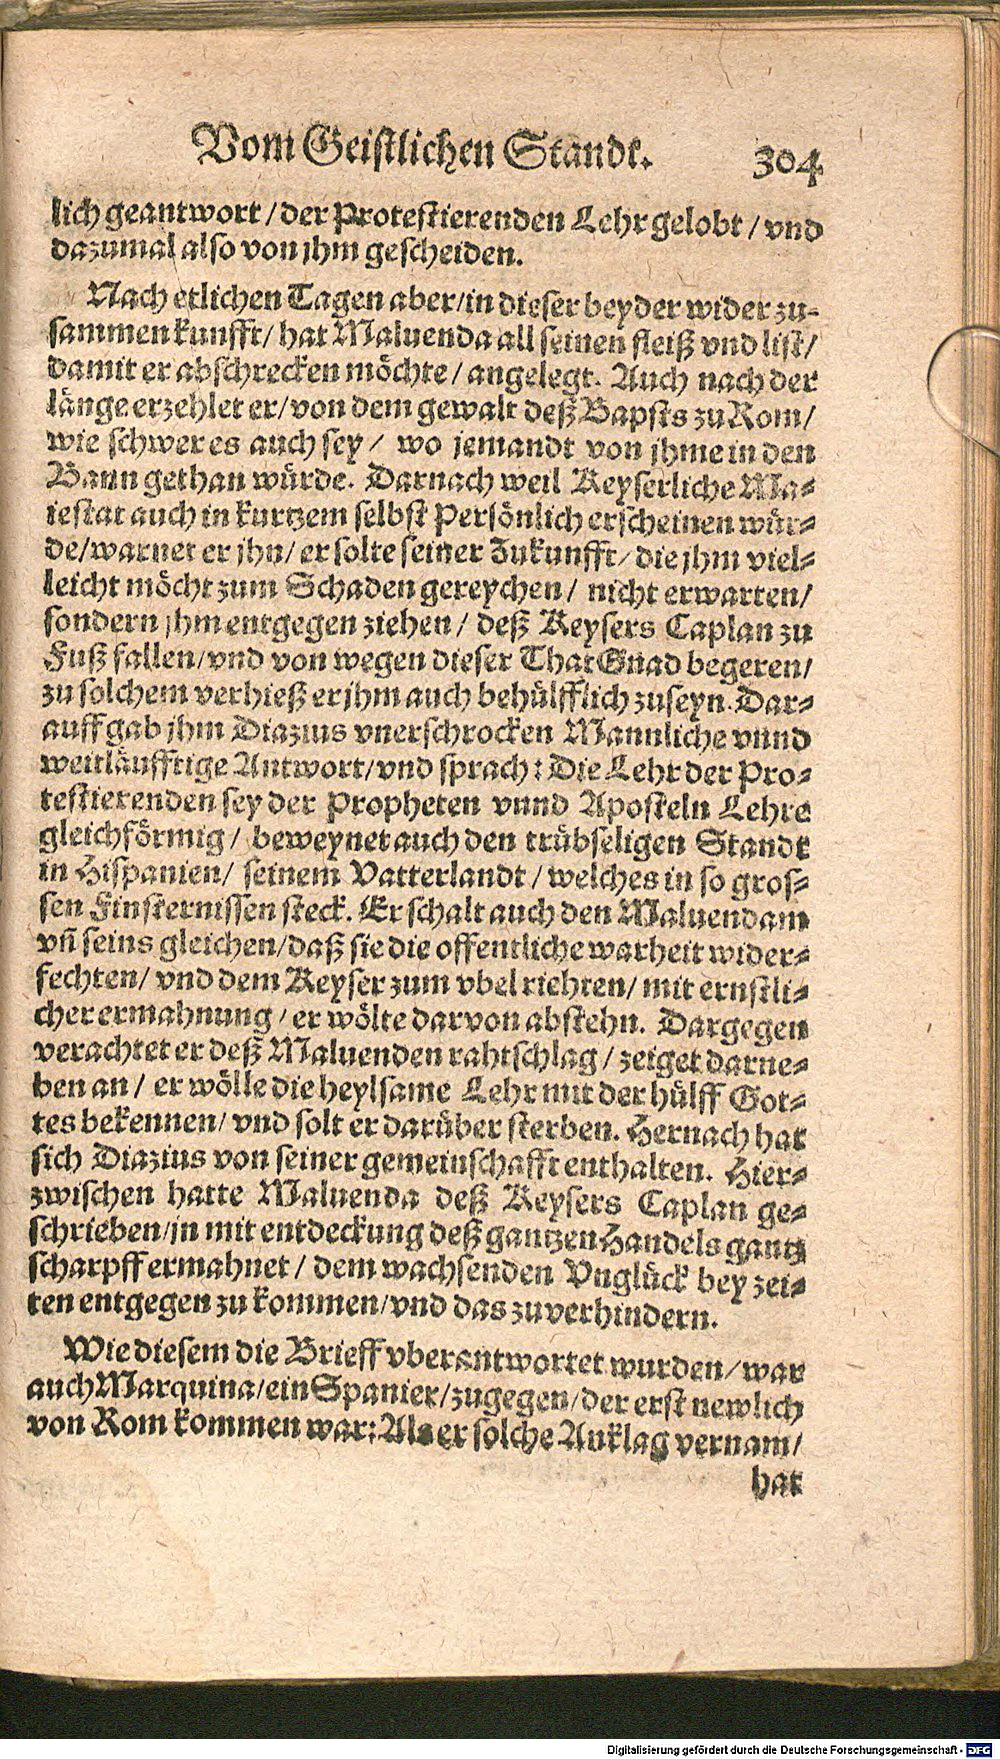 Vom Geistlichen Stande. 304
lich geantwort / der Protestierenden Lehr gelobt / vnd
dazumal also von jhm gescheiden.
Nach etlichen Tagen aber/in dieser beyder wider zu-
sammen kunfft/ hat Maluenda all seinen fleiß vnd list/
damit er abschrecken möchte / angelegt. Auch nach der
länge erzehlet er/von dem gewalt deß Bapsts zu Rom/
wie schwer es auch sey / wo jemandt von jhme in den
Bann gethan würde. Darnach weil Keyserliche Ma-
iestat auch in kurtzem selbst Persönlich erscheinen wür-
de/warnet er jhn/ er solte seiner Zukunfft/ die jhm viel-
leicht möcht zum Schaden gereychen / nicht erwarten/
sondern jhm entgegen ziehen / deß Keysers Caplan zu
Fuß fallen/vnd von wegen dieser That Gnad begeren/
zu solchem verhieß er jhm auch behülfflich zuseyn. Dar-
auff gab jhm Diazius vnerschrocken Mannliche vnnd
weitläufftige Antwort/vnd sprach: Die Lehr der Pro-
testierenden sey der Propheten vnnd Aposteln Lehre
gleichförmig / beweynet auch den trübseligen Standt
in Hispanien/ seinem Vatterlandt / welches in so gros-
sen Finsternissen steck. Er schalt auch den Maluendam
vñ seins gleichen/daß sie die offentliche warheit wider-
fechten/ vnd dem Keyser zum vbel riehten/ mit ernstli-
cher ermahnung / er wölte darvon abstehn. Dargegen
verachtet er deß Maluenden rahtschlag / zeiget darne-
ben an / er wölle die heylsame Lehr mit der hülff Got-
tes bekennen/ vnd solt er darüber sterben. Hernach hat
sich Diazius von seiner gemeinschafft enthalten. Hier-
zwischen hatte Maluenda deß Keysers Caplan ge-
schrieben/jn mit entdeckung deß gantzen Handels gantz
scharpff ermahnet / dem wachsenden Vnglück bey zei-
ten entgegen zu kommen/vnd das zuverhindern.
Wie diesem die Brieff vberantwortet wurden/war
auch Marquina/ein Spanier/zugegen/der erst newlich
von Rom kommen war: Als er solche Anklag vernam/
hat
Digitalisierung gefördert durch die Deutsche Forschungsgemeinschaft - DFG